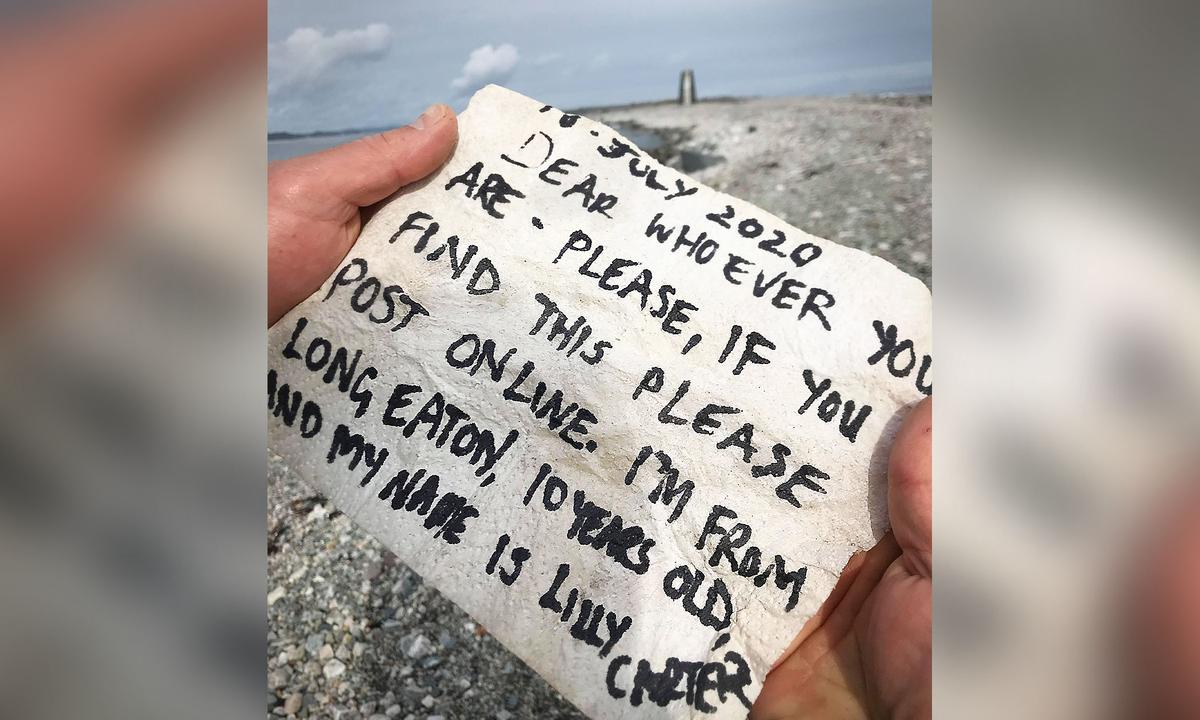 JULY 2020
DEAR WHOEVER YOU
ARE - PLEASE, IF YOU
FIND THIS PLEASE
POST ONLINE. I'M FROM
LONG EATON, 10 YEARS OLD,
AND MY NAME IS LILLY
CARTER